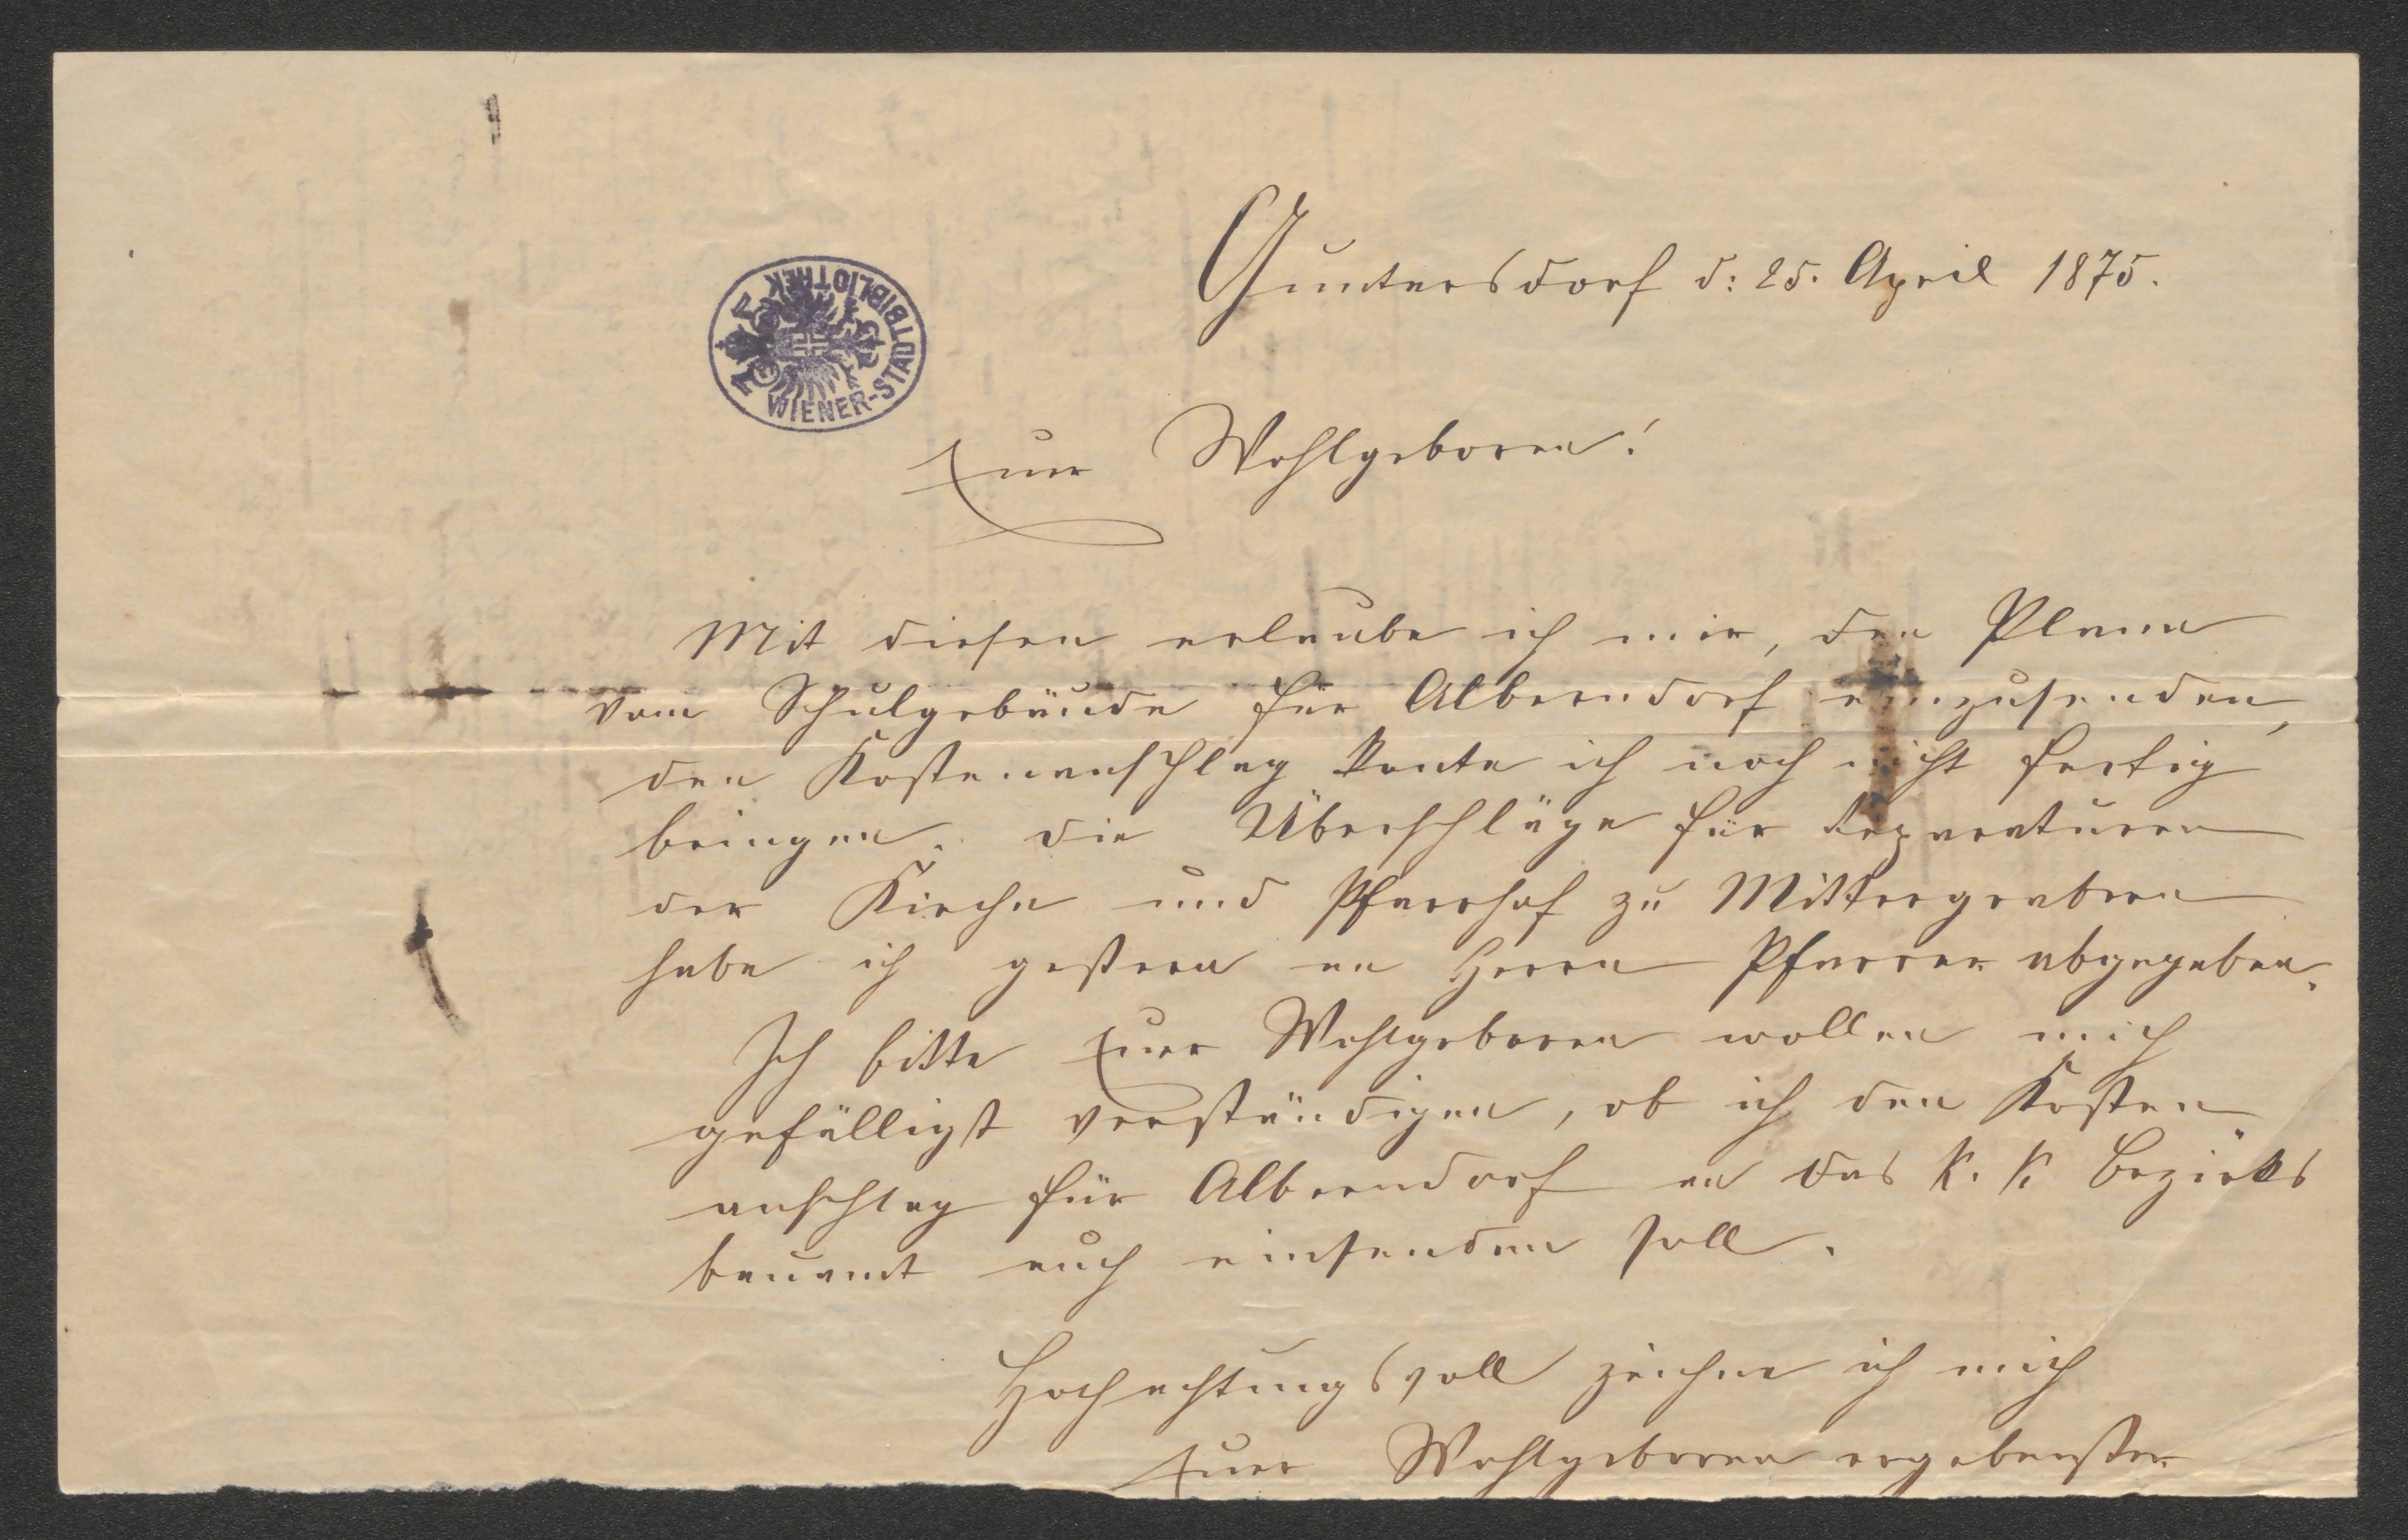 WIENER-STADTBIBLIOTHEK
Guntersdorf d: 25. April 1875.
Euer Wohlgeboren!
Mit diesen erlaube ich mir, den Plann
vom Schulgebäude für Alberndorf einzusenden,
den Kostenanschlag konte ich noch nicht fertig
bringen. die Überschläge für Reparaturen
der Kirche und Pfarrhof zu Mittergrabern
habe ich gestern an Herrn Pfarrer abgegeben.
Ich bitte Euer Wohlgeboren wollen mich
gefälligst verständigen, ob ich den Kosten
anschlag für Alberndorf an das k. k. Bezirks
bauamt auch einsenden soll.
Hochachtungsvoll zeichne ich mich
Euer Wohlgeboren ergebenster